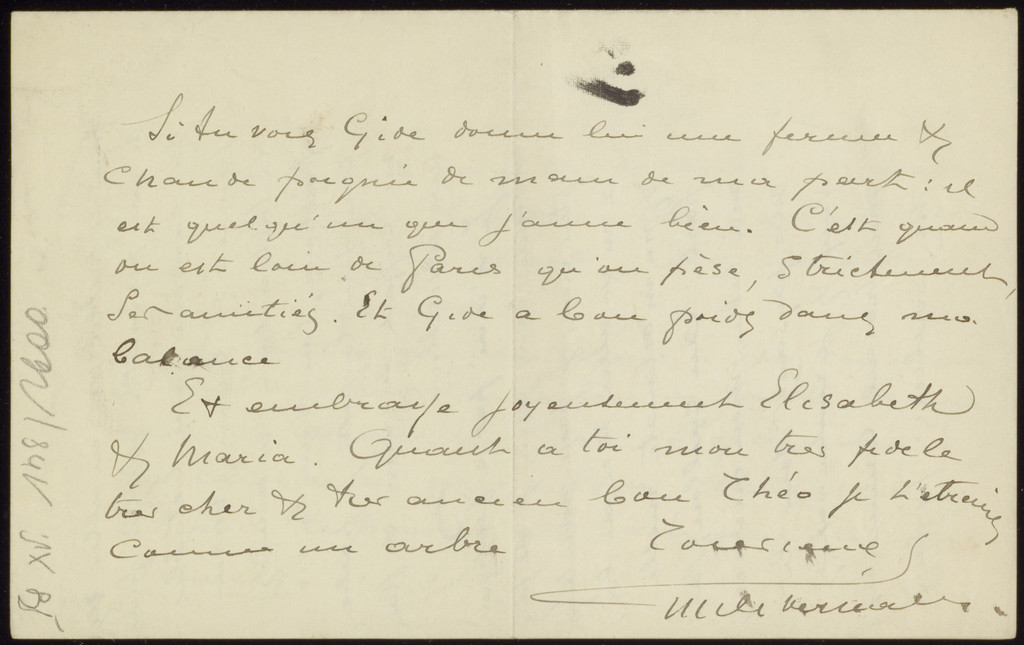 Si tu vois Gide donne lui une ferme &
chaude poignée de main de ma part : il
est quelqu'un que j'aime bien. C'est quand
on est loin de Paris qu'on pèse, strictement,
ses amitiés. Et Gide a bon poids dans ma
balance
Et embrasse joyeusement Elisabeth
& Maria. Quant a toi mon tres fidele
tres cher & tres ancien bon Théo je t'etreins
comme un arbre
FS XV. 148/1200